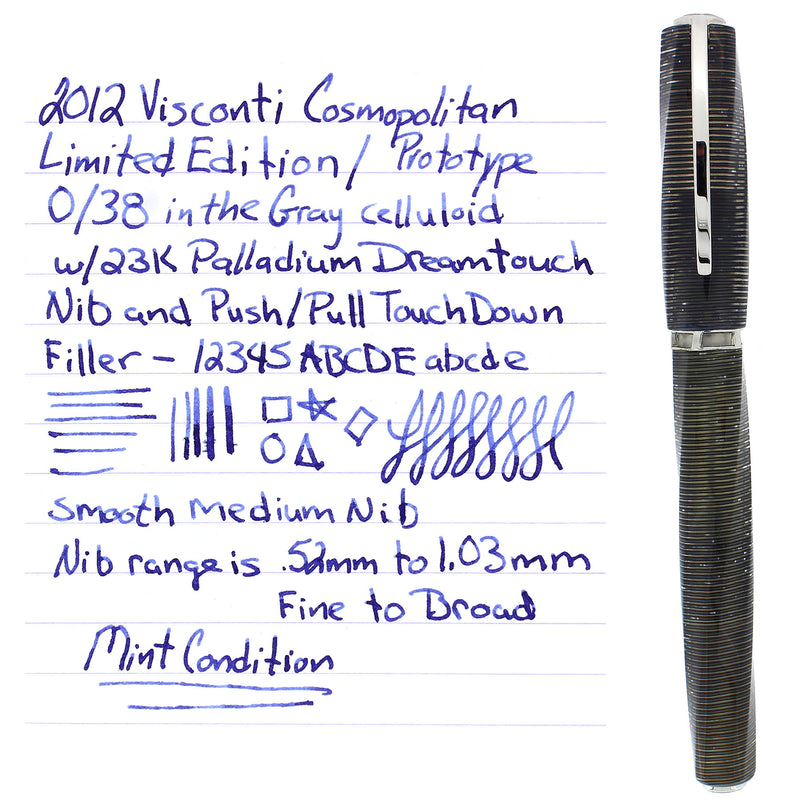 2012 Visconti Cosmopolitan
Limited Edition / Prototype
0/38 in the Gray celluloid
w/23K Palladium Dreamtouch
Nib and Push/Pull TouchDown
Filler – 12345 ABCDE abcde
Smooth Medium Nib
Nib range is .52mm to 1.03mm
Fine to Broad
Mint Condition